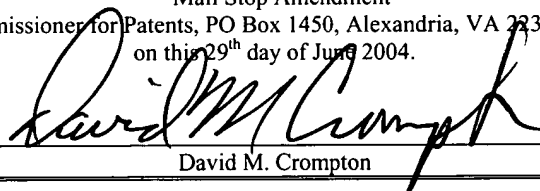 Mail Stop Amendment
missioner for Patents, PO Box 1450, Alexandria, VA 223
on this 29th day of June 2004.
David M Crompton
David M. Crompton